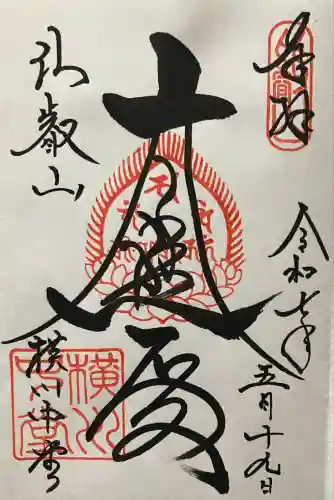 奉拝
令和七年
五月十九日
大悲殿
比叡山
横川中堂
横川
中堂